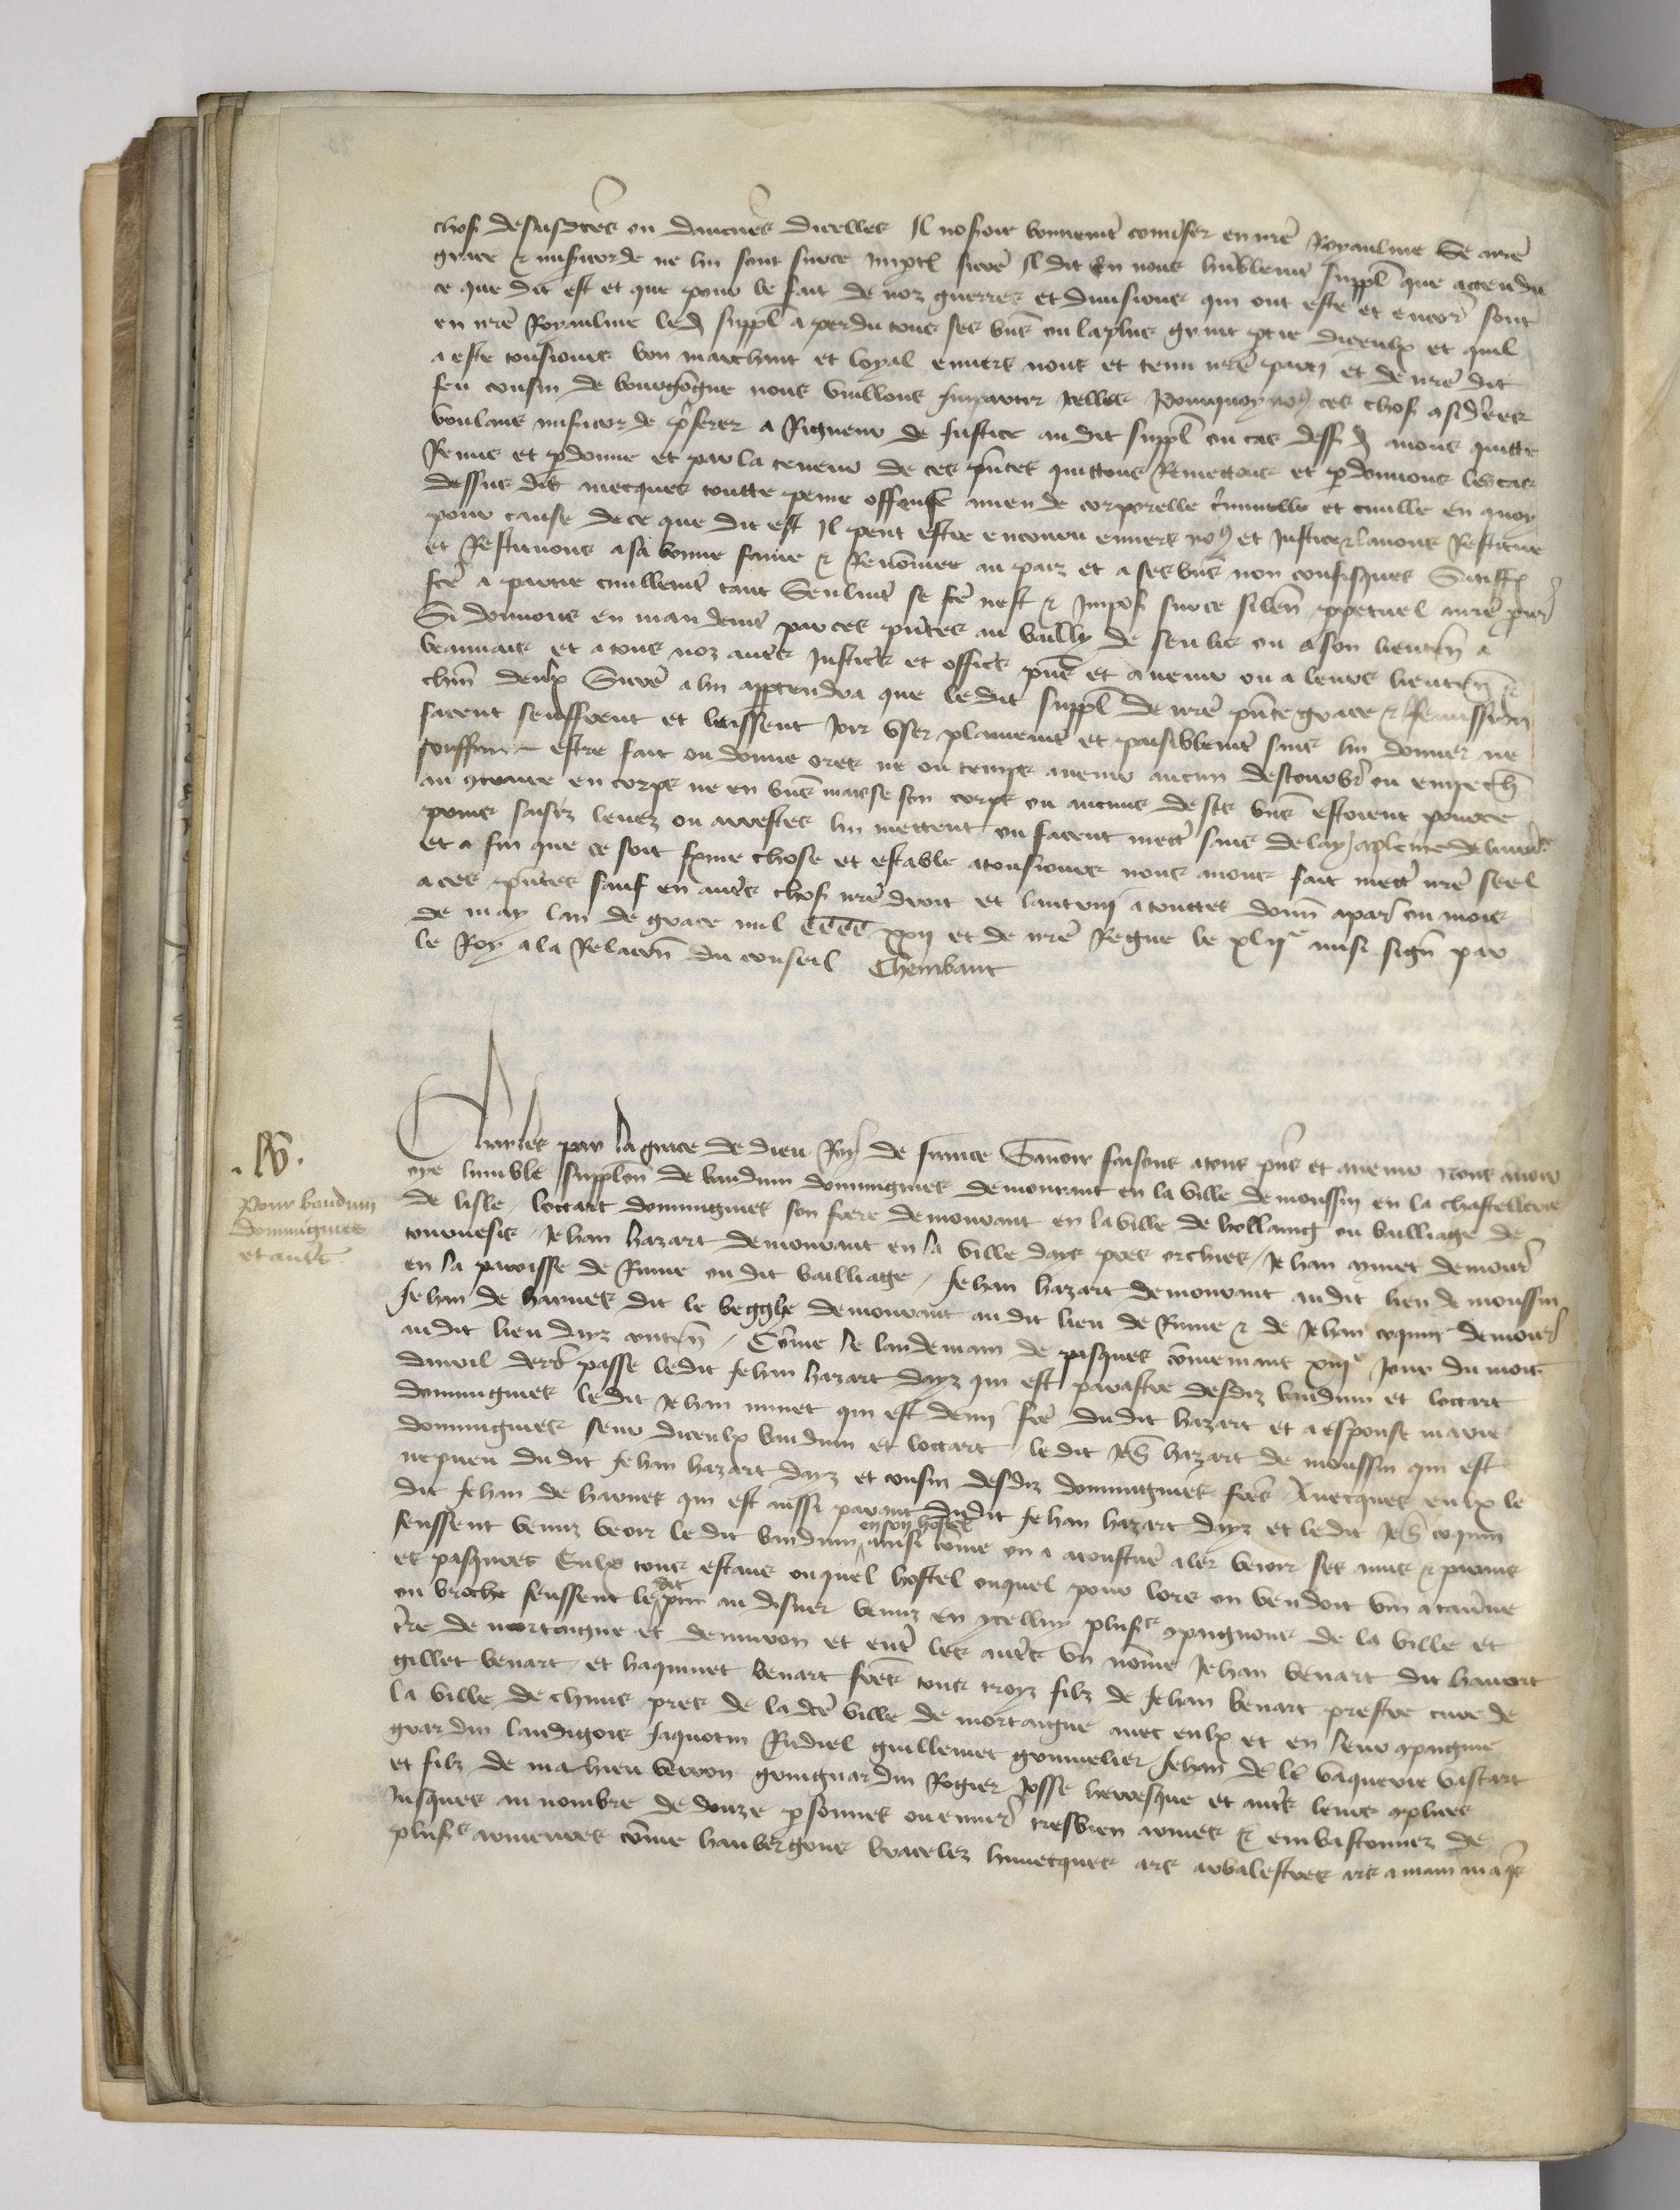 choses desusdictes ou daucunes dicelles Il noseroit bonnement converser en nre Royaulme Se nre
grace & misericorde ne lui sont sur ce impti sicome Il dit En nous humblement suppl que attendu
ce que dit est et que pour le fait de noz guerres et divisions qui ont este et encor sont
en nre Royaulme led suppl a perdu tous ses biens ou la plus grant ptie diceulx et quil
a este tousiours bon marchant et loyal envers nous et tenu nre party et de nre dit
feu cousin de bourgogne nous vueillons Impartir Icelles Pourquoy nous ces choses considerees
voulans misericorde preferer a Rigueur de Justice au dit suppl ou cas dessusd avons quitte
Remis et pdonne et par la teneur de ces pntes quittons Remettons et pdonnons les cas
dessus dis avecques toutte peine offense amende corporelle criminelle et civille en quoy
pour cause de ce que dit est Il peut estre encouru envers nous et Justice & lavons Restitue
et Restituons a sa bonne fame & Renommee au pais et a ses biens non confisques Satisffon
fce a partie civillement tant seulemt se fce nest & Imposons sur ce silence ppetuel a nre procur
Si donnons en mandemt par ces pntes au bailly de senlis ou a son lieuten a
beauvais et a tous noz autres Justiciers et officiers pns et avenir ou a leurs lieuten &
chun deulx Sicome a lui apptendra que le dit suppl de nre pnte grace & Remission
facent seuffrent et laissent Joir user plainemt et paisiblemt sans lui donner ne
souffrir estre fait ou donne ores ne ou temps avenir aucun destourbr ou empech
au contraire en corps ne en biens maiz se son corps ou aucuns de ses biens estoient pour ce
prins saisiz levez ou arrestes lui mettent ou facent mettre sans delay a plaine delivrance
et a fin que ce soit ferme chose et estable a tousiours nous avons fait mettre nre seel
a ces pntes sauf en autres choses nre droit et lautruy a touttes donn a paris ou mois
de may lan de grace mil cccc xxij et de nre Regne le xlije ainsi signe par
le Roy a la Relacion du conseil Chembaut
Charles par la grace de dieu Roy de france Savoir faisons a tous pns et avenir nous avoir
oye lumble supplon de baudum dommignies demourant en la ville de moussin en la chastellerie
de lisle, lottart dommignies son frere demourant en la ville de hollaing ou bailliage de
tournesis, Jehan hazart demourant en la ville days pres orchies, Jehan aymet demour
en la paroisse de Rume ou dit bailliage, Jehan hazart demourant audit lieu de moussin
Jehan de harnes dit le begghe demourant audit lieu de Rume & de Jehan coquin demour
audit lieu days conten, Come le landemain de pasques comenant xiije Jour du mois
davril derr passe ledit Jehan hazart dayz qui est parastre desdiz baudum et lottart
dommignies ledit Jehan aimet qui est demy fre dudit hazart et a espouse marie
dommignies seur diceulx baudum et lottart, le dit Jeh hazart de moussin qui est
nepueu dudit Jehan hazart dayz et cousin desdiz dommignies freres Avecques eulx le
dit Jehan de harnes qui est aussi parant dudit Jehan hazart dayz et ledit Jeh coquin
feussent venuz veoir le dit baudum en son hostel ainsi come on a acoustume aler veoir ses amis & parens
es pasqueres Eulx tous estans ouquel hostel ouquel pour lors on vendoit vin a taverne
en broche feussent le dit Jour au disner venuz en ycelluy plusrs compaignons de la ville et
tre de mortaigne et denviron et entre les autres un nome Jehan benart dit havart
gillet benart et haquinet benart freres tous troys filz de Jehan benart prestre cure de
la ville de chims pres de la dce ville de mortaigne avec eulx et en leur compaignie
grardin landigois Jaquotin Rudiel guillemet gommelier Jehan de le vaquerie bastart
et filz de mahieu verron gruignardin Rogier Josse herresque et autres leurs complices
Jusques au nombre de douze psonnes ou environ tresbien armes & embastonnez de
plusrs armeures come haubergons bracelez huvecques ars arbalestres ars a main maqs
.lv.
Pour baudum
dommignies
et autres